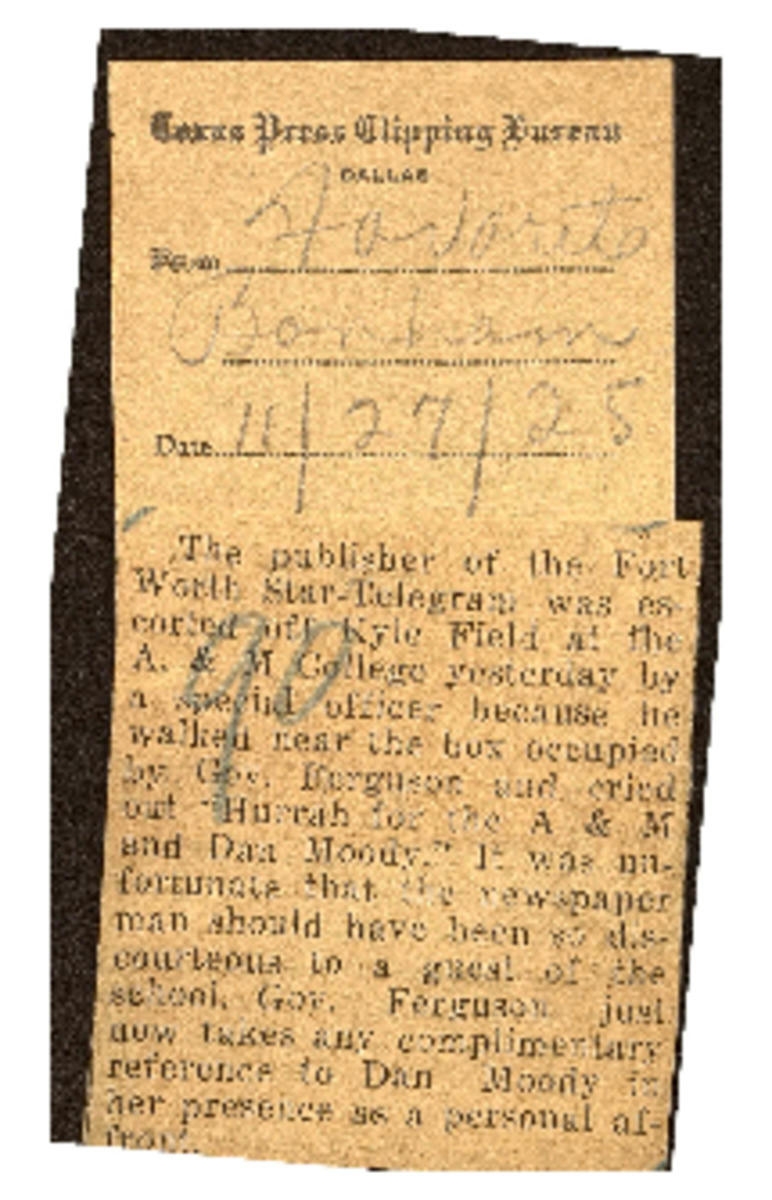 Texas Press Clipping Bureau
DALLAS
From Favorite
Bonham
Date 11/27/25
The publisher of the Fort
Worth Star-Telegram was es-
corted off Kyle Field at the
A. & M College yesterday by
a special officer because he
walked near the box occupied
by Gov. Ferguson and cried
out "Hurrah for the A & M
and Dan Moody." It was un-
fortunate that the newspaper
man should have been so dis-
courteous to a guest of the
school. Gov. Ferguson just
now takes any complimentary
reference to Dan Moody in
her presence as a personal af-
front.
90